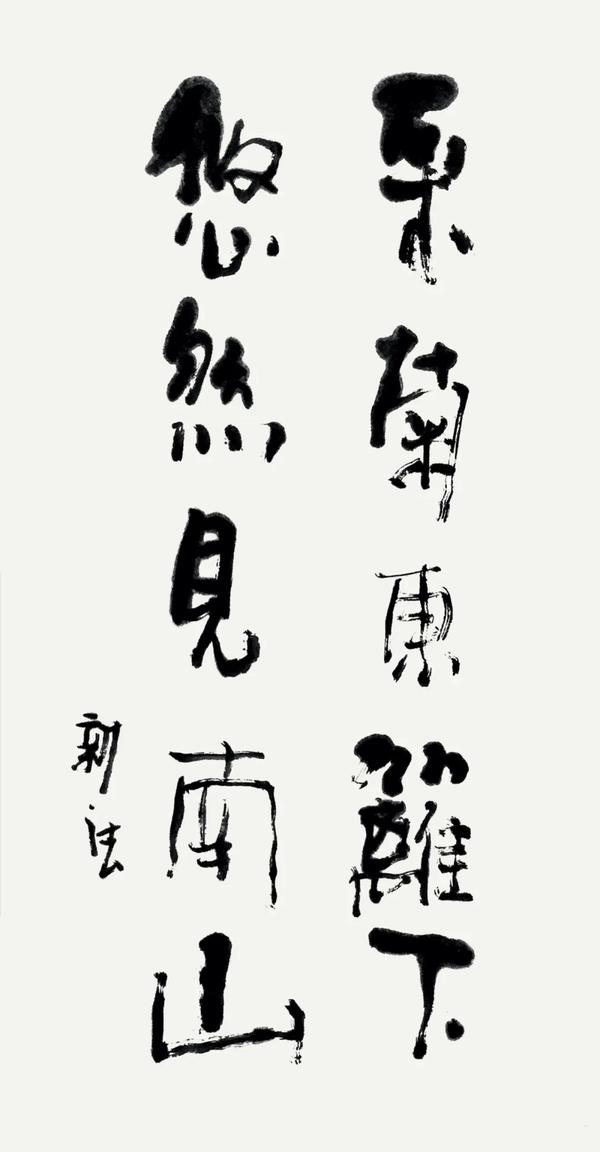 采菊東籬下
悠然見南山
新法